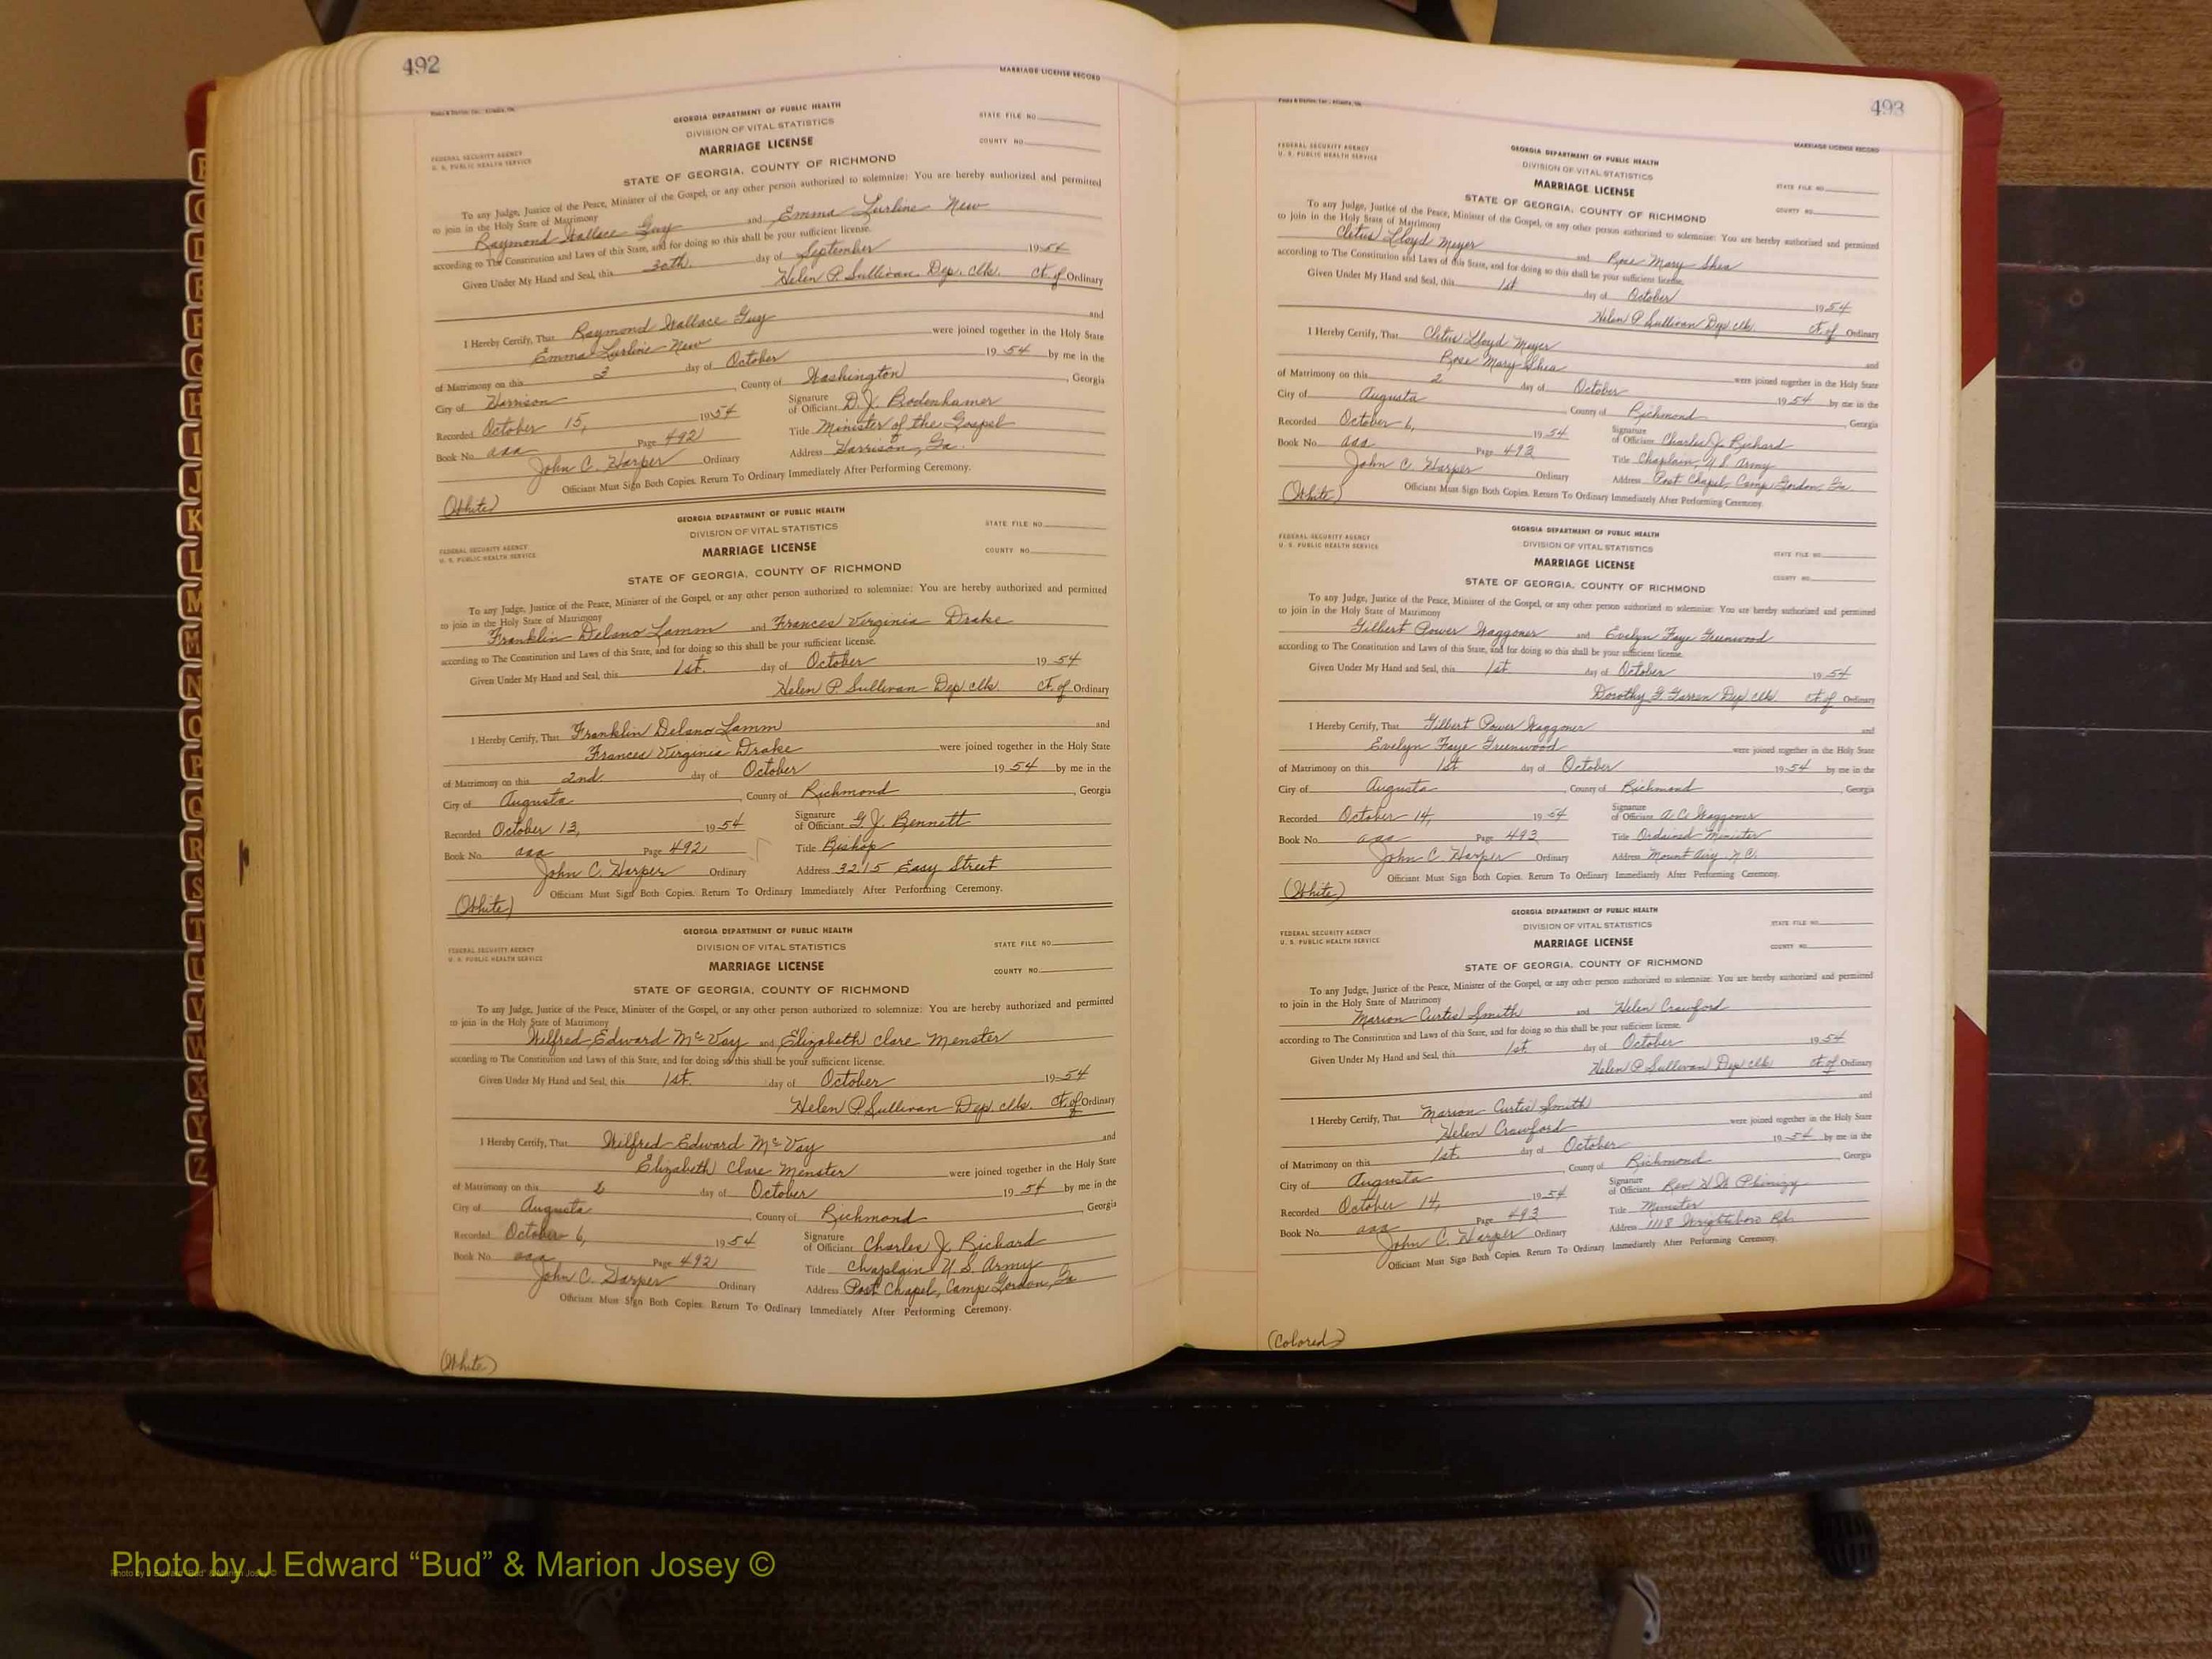 492
MARRIAGE LICENSE RECORD
GEORGIA DEPARTMENT OF PUBLIC HEALTH
DIVISION OF VITAL STATISTICS
STATE FILE NO.
FEDERAL SECURITY AGENCY
U. S. PUBLIC HEALTH SERVICE
MARRIAGE LICENSE
COUNTY NO.
STATE OF GEORGIA, COUNTY OF RICHMOND
To any Judge, Justice of the Peace, Minister of the Gospel, or any other person authorized to solemnize: You are hereby authorized and permitted
to join in the Holy State of Matrimony
Raymond Wallace Guy and Emma Lurline New
according to The Constitution and Laws of this State, and for doing so this shall be your sufficient license.
Given Under My Hand and Seal, this 30th. day of September 1954
Helen P. Sullivan Dep. Clk. Ct. of Ordinary
I Hereby Certify, That Raymond Wallace Guy and
Emma Lurline New were joined together in the Holy State
of Matrimony on this 3 day of October 1954 by me in the
City of Harrison, County of Washington, Georgia
Recorded October 15, 1954 Signature of Officiant D. J. Bodenhamer
Book No. aaa Page 492 Title Minister of the Gospel
John C. Harper Ordinary Address Harrison, Ga.
Officiant Must Sign Both Copies. Return To Ordinary Immediately After Performing Ceremony.
(White)
GEORGIA DEPARTMENT OF PUBLIC HEALTH
DIVISION OF VITAL STATISTICS
STATE FILE NO.
FEDERAL SECURITY AGENCY
U. S. PUBLIC HEALTH SERVICE
MARRIAGE LICENSE
COUNTY NO.
STATE OF GEORGIA, COUNTY OF RICHMOND
To any Judge, Justice of the Peace, Minister of the Gospel, or any other person authorized to solemnize: You are hereby authorized and permitted
to join in the Holy State of Matrimony
Franklin Delano Lamm and Frances Virginia Drake
according to The Constitution and Laws of this State, and for doing so this shall be your sufficient license.
Given Under My Hand and Seal, this 1st. day of October 1954
Helen P. Sullivan Dep clk. Ct. of Ordinary
I Hereby Certify, That Franklin Delano Lamm and
Frances Virginia Drake were joined together in the Holy State
of Matrimony on this 2nd day of October 1954 by me in the
City of Augusta, County of Richmond, Georgia
Recorded October 13, 1954 Signature of Officiant G. J. Bennett
Book No. aaa Page 492 Title Bishop
John C. Harper Ordinary Address 3215 Easy Street
Officiant Must Sign Both Copies. Return To Ordinary Immediately After Performing Ceremony.
(White)
GEORGIA DEPARTMENT OF PUBLIC HEALTH
DIVISION OF VITAL STATISTICS
STATE FILE NO.
FEDERAL SECURITY AGENCY
U. S. PUBLIC HEALTH SERVICE
MARRIAGE LICENSE
COUNTY NO.
STATE OF GEORGIA, COUNTY OF RICHMOND
To any Judge, Justice of the Peace, Minister of the Gospel, or any other person authorized to solemnize: You are hereby authorized and permitted
to join in the Holy State of Matrimony
Wilfred Edward McVay and Elizabeth Clare Menster
according to The Constitution and Laws of this State, and for doing so this shall be your sufficient license.
Given Under My Hand and Seal, this 1st. day of October 1954
Helen P. Sullivan Dep. clk. Ct. of Ordinary
I Hereby Certify, That Wilfred Edward McVay and
Elizabeth Clare Menster were joined together in the Holy State
of Matrimony on this day of October 1954 by me in the
City of Augusta, County of Richmond, Georgia
Recorded October 6, 1954 Signature of Officiant Charles J. Richard
Book No. aaa Page 492 Title Chaplain U.S. Army
John C. Harper Ordinary Address Post Chapel, Camp Gordon, Ga
Officiant Must Sign Both Copies. Return To Ordinary Immediately After Performing Ceremony.
(White)
493
MARRIAGE LICENSE RECORD
GEORGIA DEPARTMENT OF PUBLIC HEALTH
DIVISION OF VITAL STATISTICS
FEDERAL SECURITY AGENCY
U. S. PUBLIC HEALTH SERVICE
MARRIAGE LICENSE
STATE FILE NO.
COUNTY NO.
STATE OF GEORGIA, COUNTY OF RICHMOND
To any Judge, Justice of the Peace, Minister of the Gospel, or any other person authorized to solemnize: You are hereby authorized and permitted
to join in the Holy State of Matrimony
Cletus Lloyd Meyer and Rose Mary Shea
according to The Constitution and Laws of this State, and for doing so this shall be your sufficient license.
Given Under My Hand and Seal, this 1st day of October 1954
Helen P. Sullivan Dep clk. Ct. of Ordinary
I Hereby Certify, That Cletus Lloyd Meyer and
Rose Mary Shea were joined together in the Holy State
of Matrimony on this 2 day of October 1954 by me in the
City of Augusta, County of Richmond, Georgia
Recorded October 6, 1954 Signature of Officiant Charles J. Richard
Book No. aaa Page 493 Title Chaplain, U.S. Army
John C. Harper Ordinary Address Post Chapel, Camp Gordon, Ga.
Officiant Must Sign Both Copies. Return To Ordinary Immediately After Performing Ceremony.
(White)
GEORGIA DEPARTMENT OF PUBLIC HEALTH
DIVISION OF VITAL STATISTICS
FEDERAL SECURITY AGENCY
U. S. PUBLIC HEALTH SERVICE
MARRIAGE LICENSE
STATE FILE NO.
COUNTY NO.
STATE OF GEORGIA, COUNTY OF RICHMOND
To any Judge, Justice of the Peace, Minister of the Gospel, or any other person authorized to solemnize: You are hereby authorized and permitted
to join in the Holy State of Matrimony
Gilbert Power Waggoner and Evelyn Faye Greenwood
according to The Constitution and Laws of this State, and for doing so this shall be your sufficient license.
Given Under My Hand and Seal, this 1st day of October 1954
Dorothy G. Garren Dep clk. Ct. of Ordinary
I Hereby Certify, That Gilbert Power Waggoner and
Evelyn Faye Greenwood were joined together in the Holy State
of Matrimony on this 1st day of October 1954 by me in the
City of Augusta, County of Richmond, Georgia
Recorded October 14, 1954 Signature of Officiant A. C. Waggoner
Book No. aaa Page 493 Title Ordained Minister
John C. Harper Ordinary Address Mount Airy N.C.
Officiant Must Sign Both Copies. Return To Ordinary Immediately After Performing Ceremony.
(White)
GEORGIA DEPARTMENT OF PUBLIC HEALTH
DIVISION OF VITAL STATISTICS
FEDERAL SECURITY AGENCY
U. S. PUBLIC HEALTH SERVICE
MARRIAGE LICENSE
STATE FILE NO.
COUNTY NO.
STATE OF GEORGIA, COUNTY OF RICHMOND
To any Judge, Justice of the Peace, Minister of the Gospel, or any other person authorized to solemnize: You are hereby authorized and permitted
to join in the Holy State of Matrimony
Marion Curtis Smith and Helen Crawford
according to The Constitution and Laws of this State, and for doing so this shall be your sufficient license.
Given Under My Hand and Seal, this 1st day of October 1954
Helen P. Sullivan Dep clk Ct. of Ordinary
I Hereby Certify, That Marion Curtis Smith and
Helen Crawford were joined together in the Holy State
of Matrimony on this 1st. day of October 1954 by me in the
City of Augusta, County of Richmond, Georgia
Recorded October 14, 1954 Signature of Officiant Rev W. W. Phinizy
Book No. aaa Page 493 Title Minister
John C. Harper Ordinary Address 1118 Wrightsboro Rd.
Officiant Must Sign Both Copies. Return To Ordinary Immediately After Performing Ceremony.
(Colored)
Photo by J Edward “Bud” & Marion Josey ©
Photo by J Edward “Bud” & Marion Josey ©